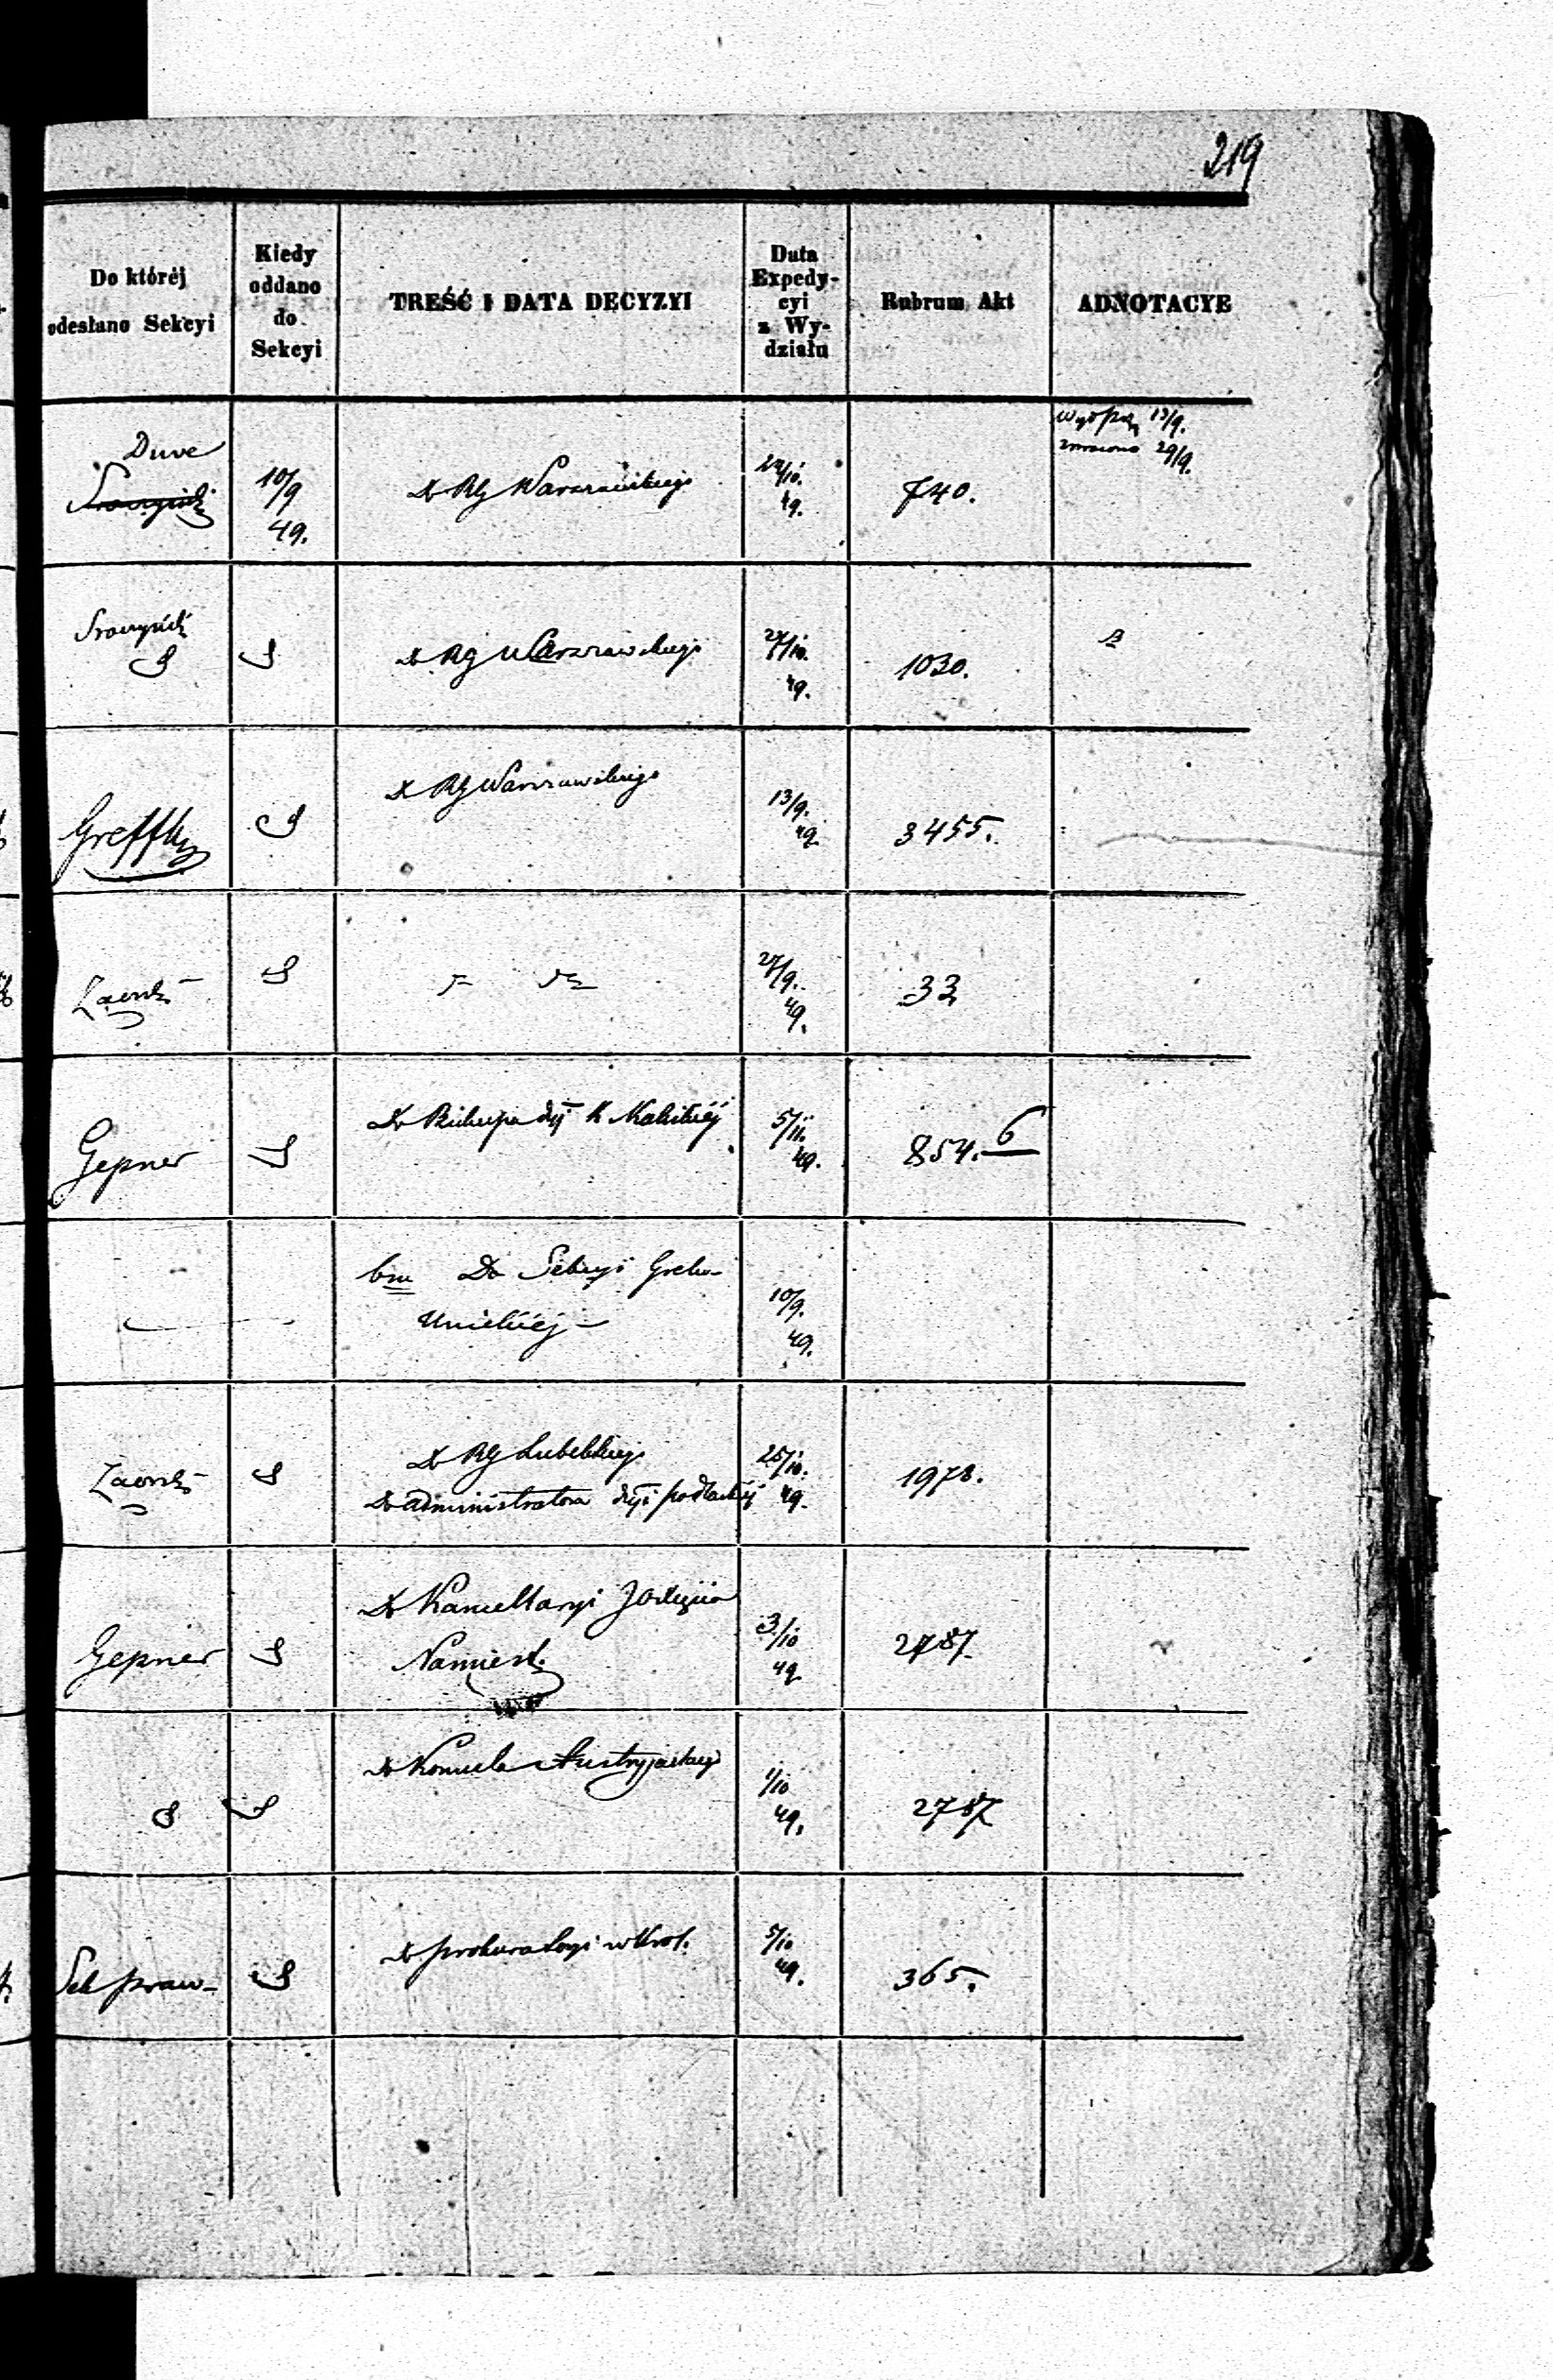 219
Do któréj odesłano Sekcyi
Kiedy oddano do Sekcyi
TREŚĆ I DATA DECYZYI
Data Expedycyi z Wydziału
Rubrum Akt
ADNOTACYE
Duve
10/9 49.
Do RG Warszawskiego
/10. 49.
740.
13/9.
zwrócono 29/9.
Do RG Warszawskiego
/10. 49.
1030.
Greffky
Do RG Warszawskiego
13/9. 49
3455.
/9. 49.
33
Gepner
Do Biskupa Dyi K Kaliskiéj
5/11. 49.
854. 6
bm Do Sekcyi Greko-
Unickiéj
10/9. 49.
Do RG Lubelskiego
Do Administratora Dyi podlaskiéj
25/10. 49
1978.
Gepner
Do Kancellaryi JO Xięcia
Namiest.
3/10 49
2787
Do Konsula Austryjackiego
1/10 49.
2787
Sek praw
Do prokuratoryi w Król.
5/10 49.
365.